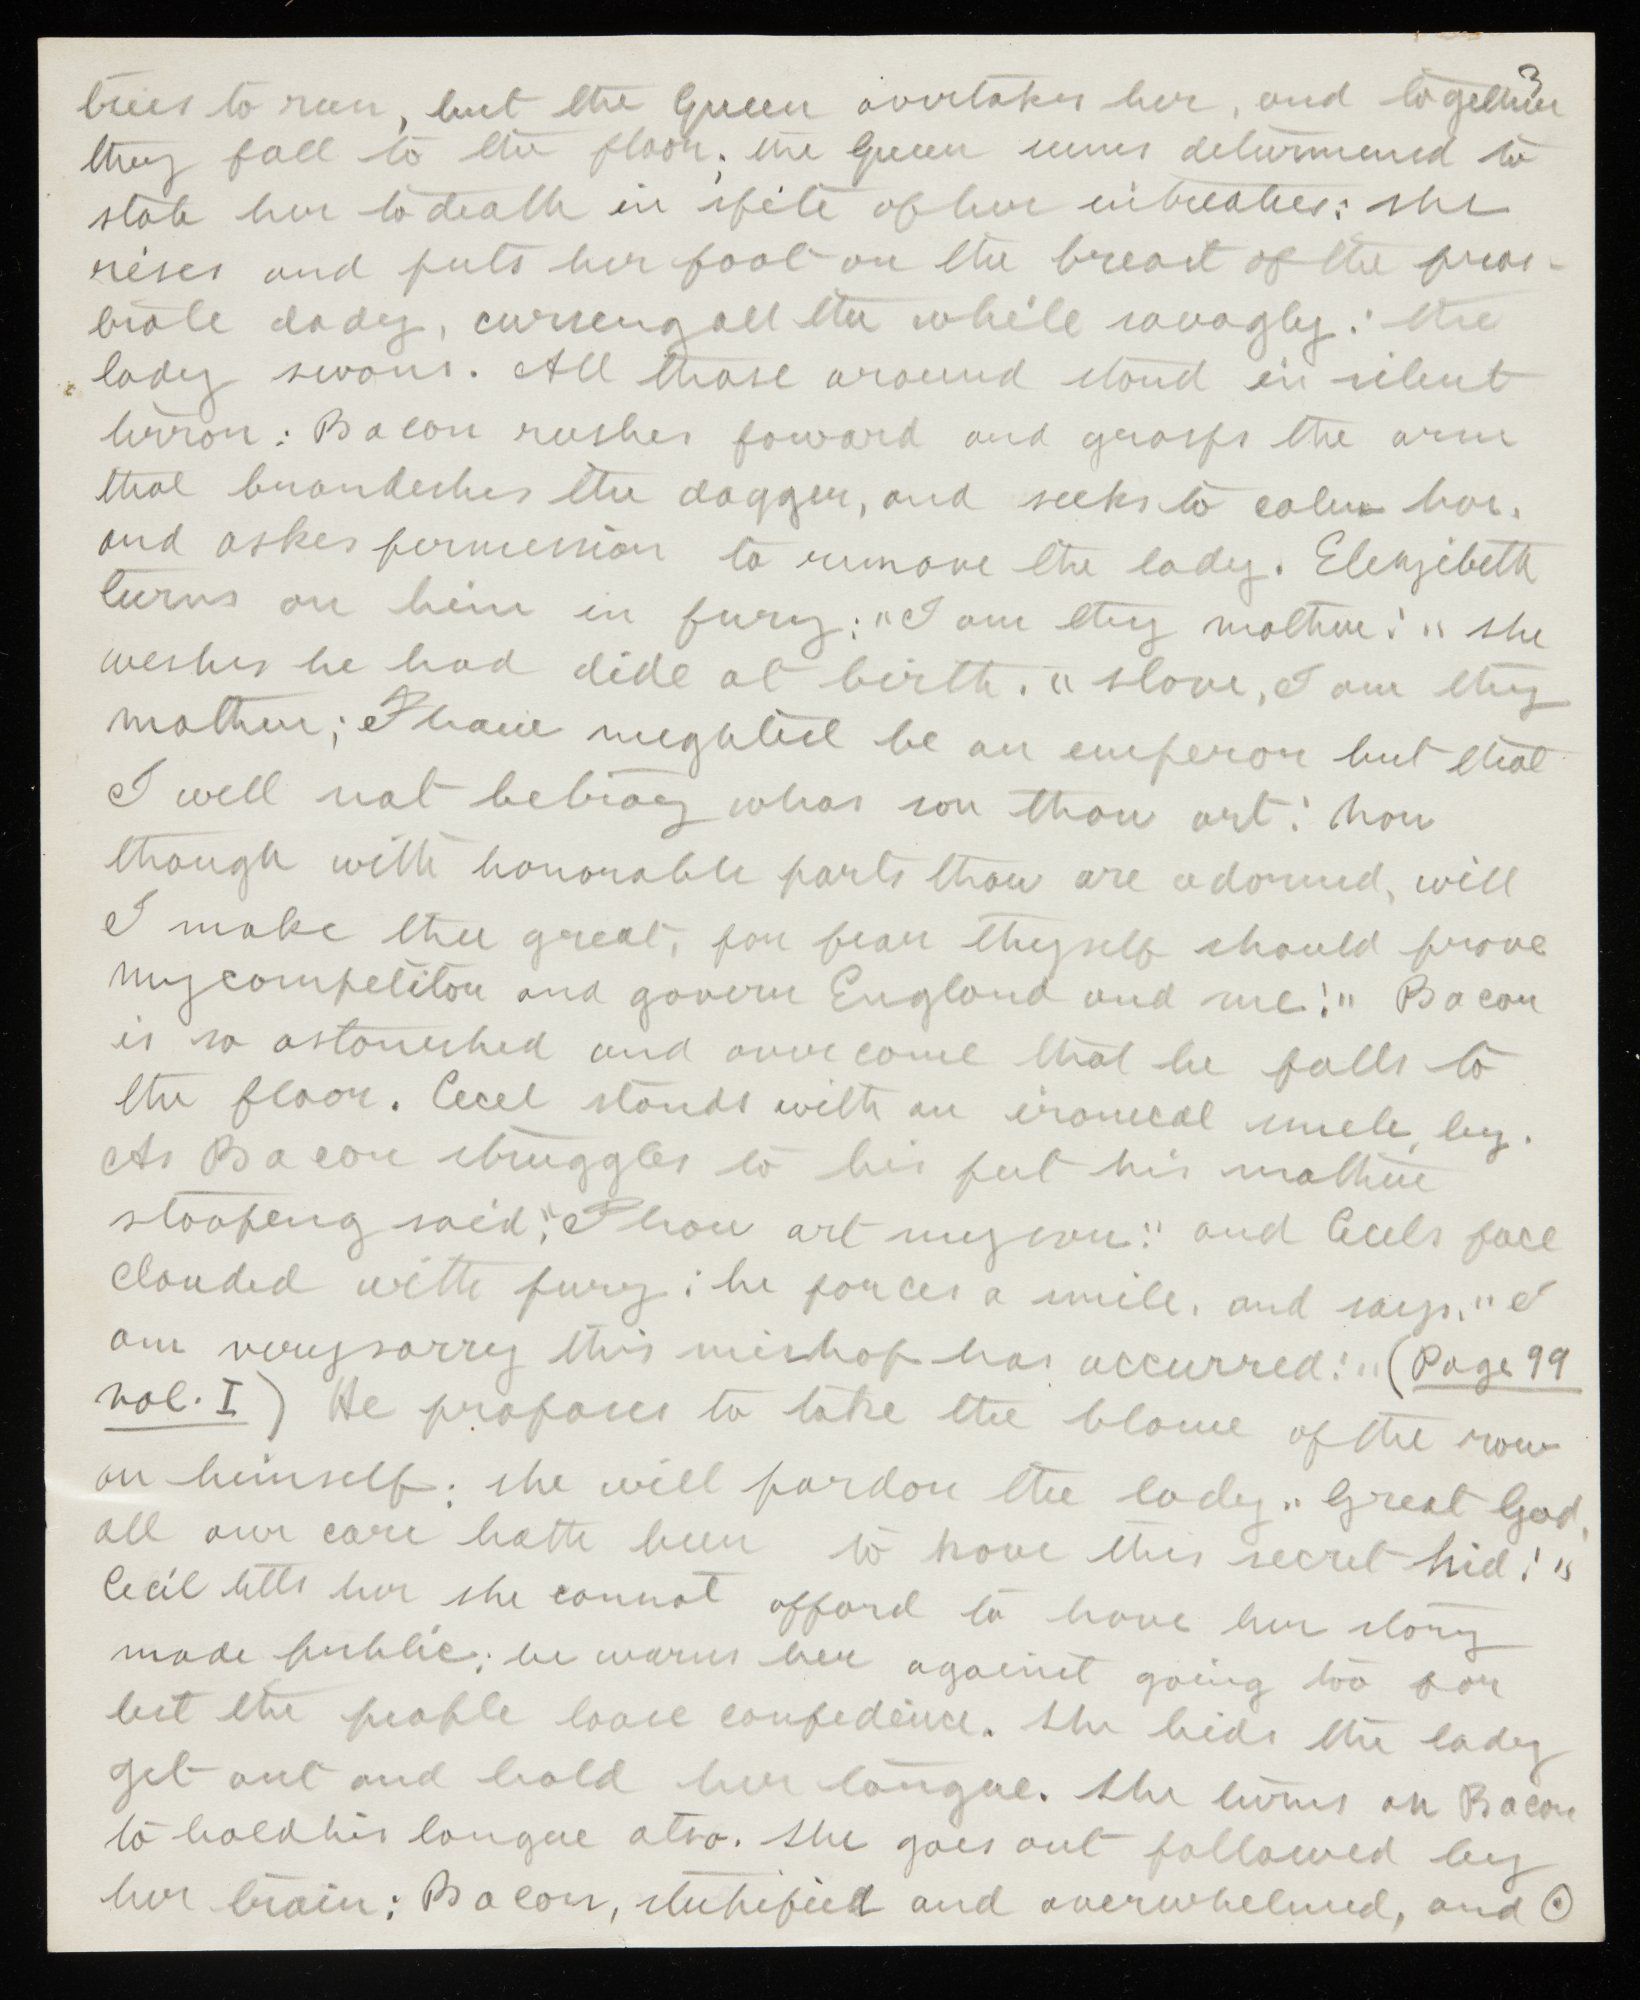 3
tries to run, but the Queen overtakes her, and together
they fall to the floor; the Queen seems determined to
stab her to death in spite of her entreaties: she
rises and puts her foot on the breast of the pros-
trate lady, cursing all the while savagly: the
lady swons. All those around stand in silent
terror: Bacon rushes foward and grasps the arm
that brandishes the dagger, and seeks to calm her.
and askes permission to remove the lady. Elezibeth
turns on him in fury: "I am thy mother!" she
wishes he had dide at birth. "Slave, I am thy
mother; Thou mightest be an emperor but that
I will not betray whos son thou art! Nor
though with honorable parts thou are adorned, will
I make thee great, for fear thyself should prove
my competitor and govern England and me!" Bacon
is so astonished and overcome that he falls to
the floor. Cecil stands with an ironical smile, by.
As Bacon struggles to his feet his mother
stooping said; "Thou art my son:" and Cecils face
clouded with fury: he forces a smile, and says, "I
am very sorry this mishap has occurred!" (Page 99
vol. I) He proposes to take the blame of the row
on himself; she will pardon the lady. "Great God,
all our care hath been to have this secret hid!"
Cecil tells her she cannot afford to have her story
made public; he warns her against going too far
lest the people loose confidence. She bids the lady
get out and hold her tongue. She turns on Bacon
to hold his tongue also. She goes out followed by
her train: Bacon, stupified and overwhelmed, and